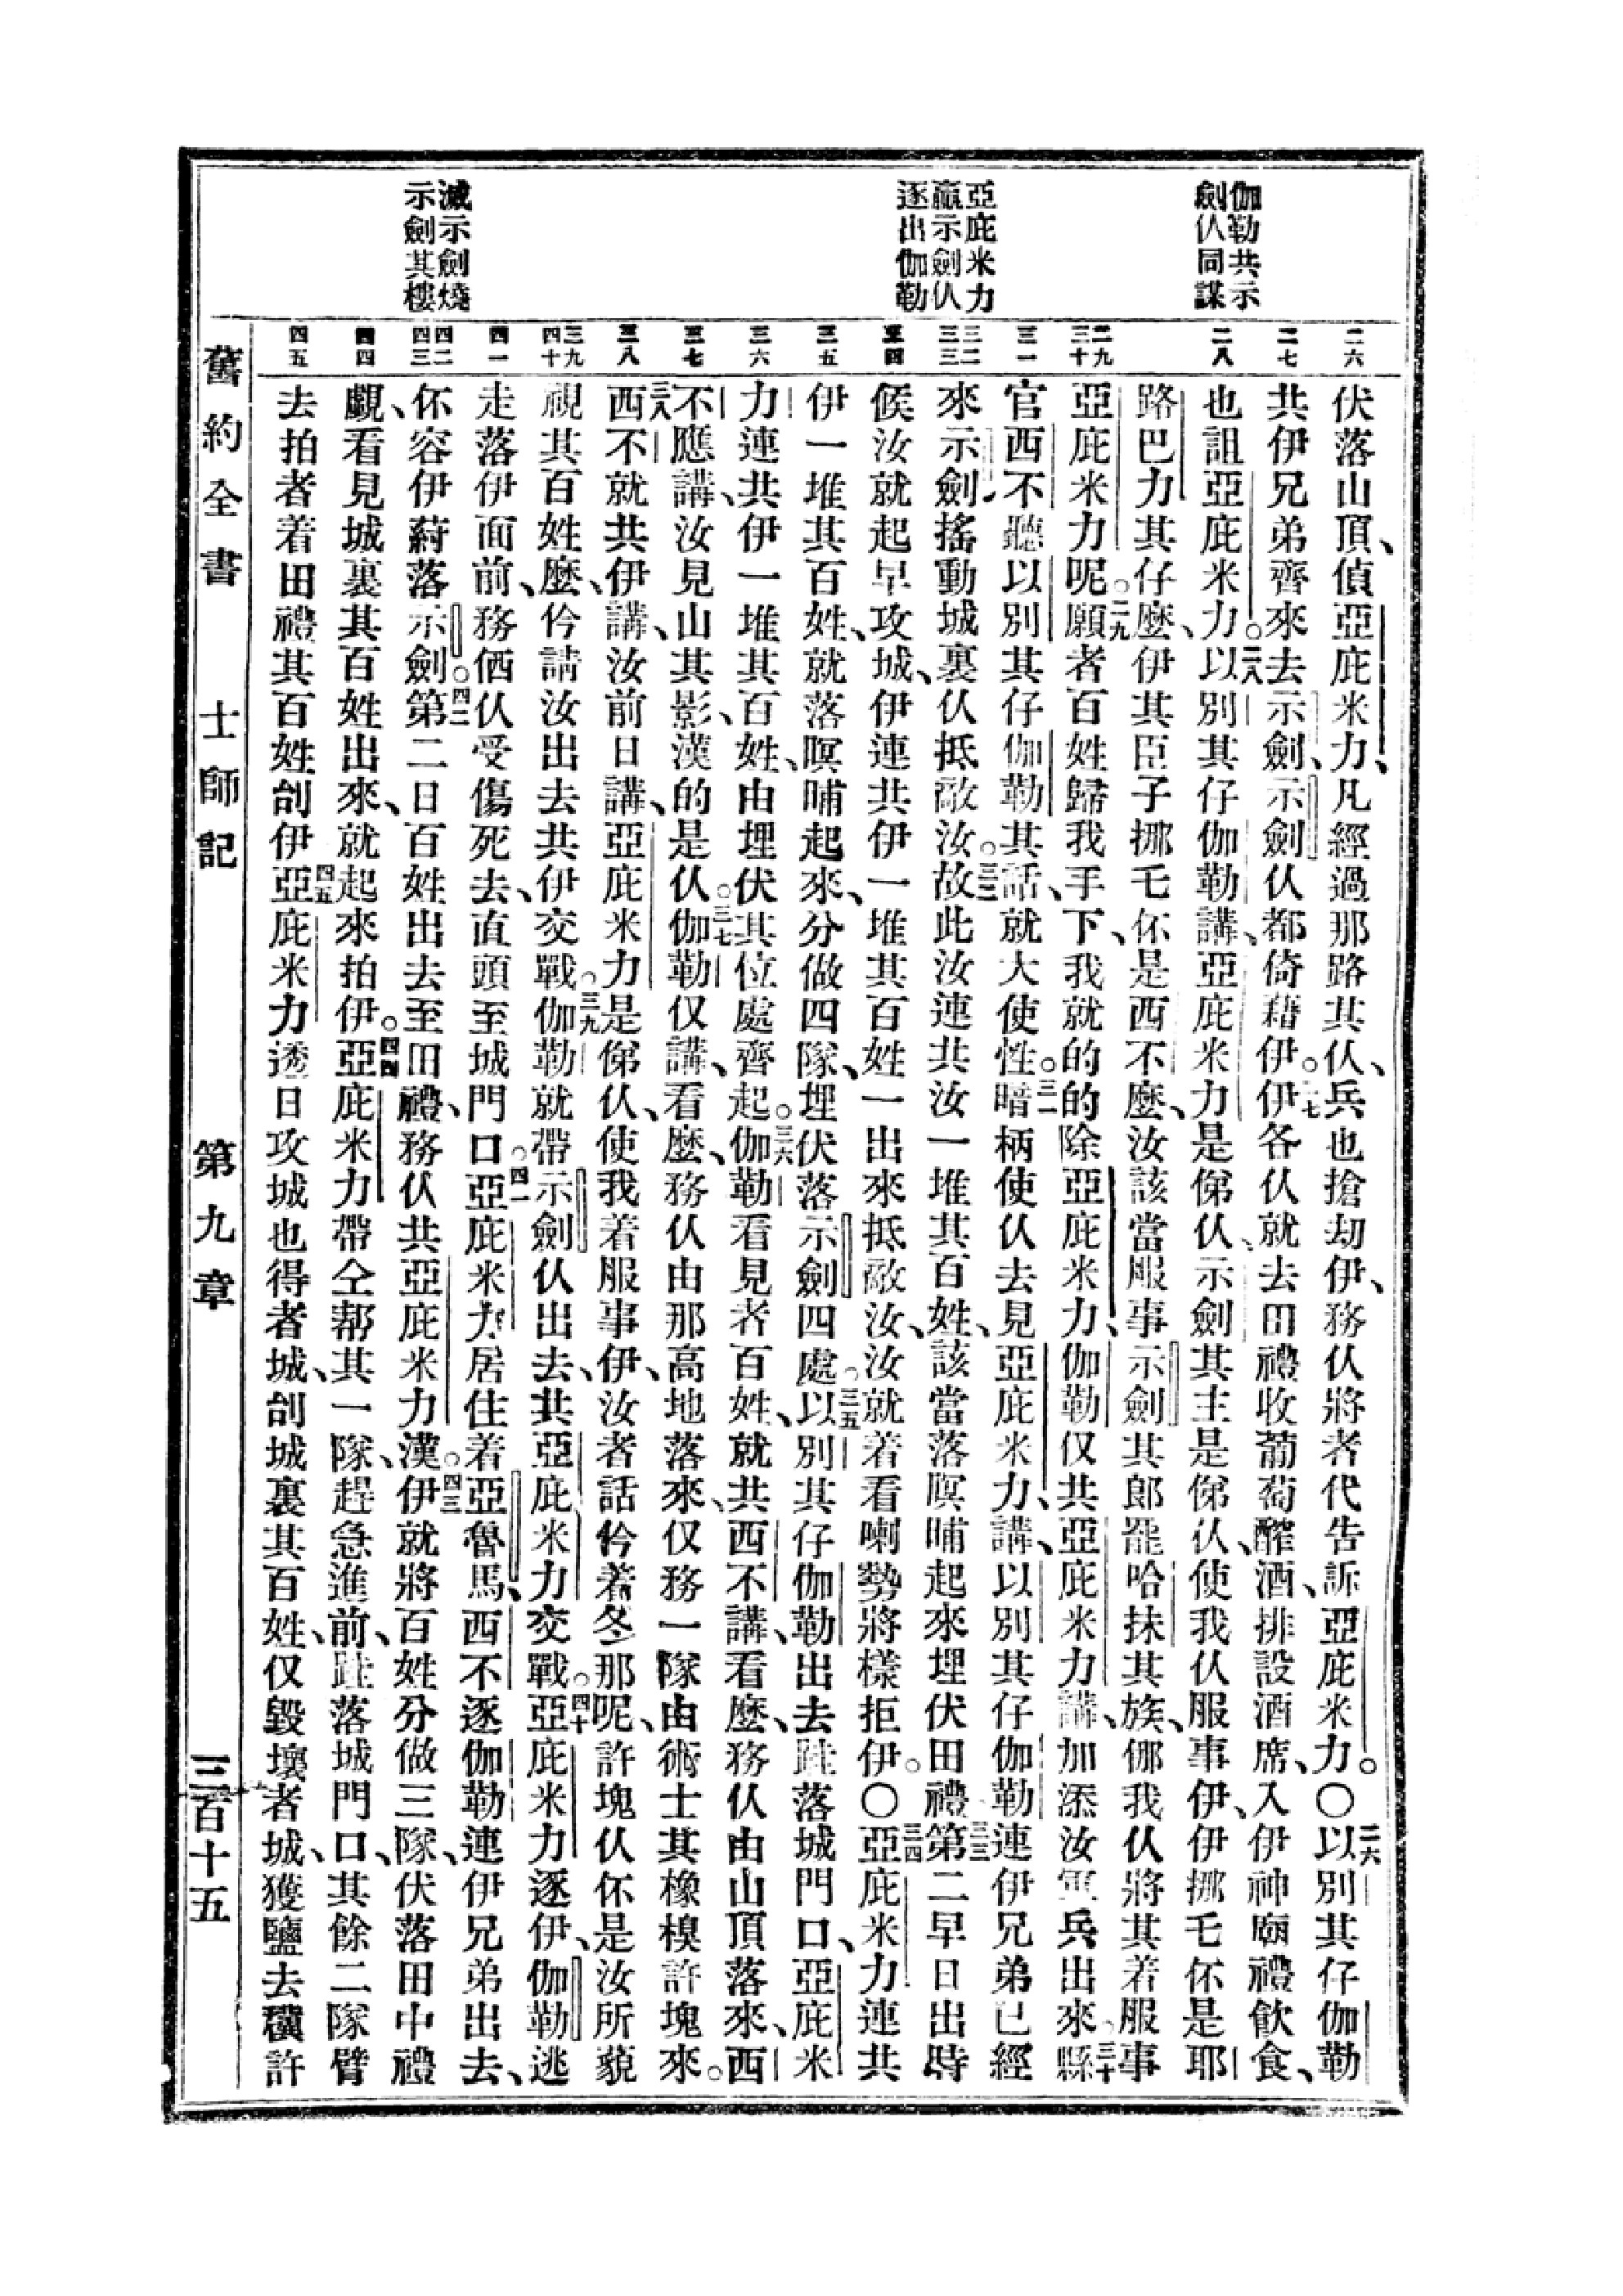 伽勒共示
劍仈同謀
亞庇米力
贏示劍仈
逐出伽勒
滅示劍燒
示劍其樓
二六
二七
二八
二九
三十
三一
三二
三三
三四
三五
三六
三七
三八
三九
四十
四一
四二
四三
四四
四五
伏落山頂、偵亞庇米力、凡經過那路其仈、兵也搶劫伊、務仈將者代告訴、亞庇米力。〇二六以別其仔伽勒
共伊兄弟齊來去示劍、示劍仈都倚藉伊。二七伊各仈就去田禮收葡萄、醡酒、排設酒席、入伊神廟禮飲食、
也詛亞庇米力。二八以別其仔伽勒講、亞庇米力是俤仈、示劍其主是俤仈、使我仈服事伊、伊挪乇伓是耶
路巴力其仔麼、伊其臣子挪乇伓是西不麼、汝該當服事示劍其郎罷哈抹其族、㑚我仈將其着服事
亞庇米力呢。二九願者百姓歸我手下、我就的的除亞庇米力、伽勒仅共亞庇米力講、加添汝軍兵出來。三十縣
官西不聽以別其仔伽勒其話、就大使性。三一暗柄使仈去見亞庇米力、講、以別其仔伽勒連伊兄弟已經
來示劍、搖動城裏仈抵敵汝。三二故此汝連共汝一堆其百姓、該當落暝晡起來埋伏田禮。三三第二早日出時
候汝就起早攻城、伊連共伊一堆其百姓一出來抵敵汝、汝就着看喇勢將樣拒伊。〇三四亞庇米力連共
伊一堆其百姓、就落暝晡起來、分做四隊、埋伏落示劍四處。三五以別其仔伽勒出去跕落城門口、亞庇米
力連共伊一堆其百姓、由埋伏其位處齊起。三六伽勒看見者百姓、就共西不講、看麼、務仈由山頂落來、西
不應講、汝見山其影、漢的是仈。三七伽勒仅講、看麼、務仈由那高地落來、仅務一隊由術士其橡模許塊來。
三八西不就共伊講、汝前日講、亞庇米力是俤仈、使我着服事伊、汝者話仱着冬那呢、許塊仈伓是汝所藐
視其百姓麼、仱請汝出去共伊交戰。三九伽勒就帶示劍仈出去、共亞庇米力交戰。四十亞庇米力逐伊、伽勒逃
走落伊面前、務𠈁仈受傷死去、直頭至城門口。四一亞庇米力居住着亞魯馬、西不逐伽勒連伊兄弟出去、
伓容伊𦶓落示劍。四二第二日百姓出去至田禮、務仈共亞庇米力漢。四三伊就將百姓分做三隊、伏落田中禮
覷、看見城裏其百姓出來、就起來拍伊。四四亞庇米力帶仝幫其一隊、趕急進前、跕落城門口、其餘二隊臂
去拍者着田禮其百姓刣伊。四五亞庇米力透日攻城也得者城、刣城裏其百姓、仅毀壞者城、獲鹽去穬許
舊約全書　士師記　第九章　三百十五